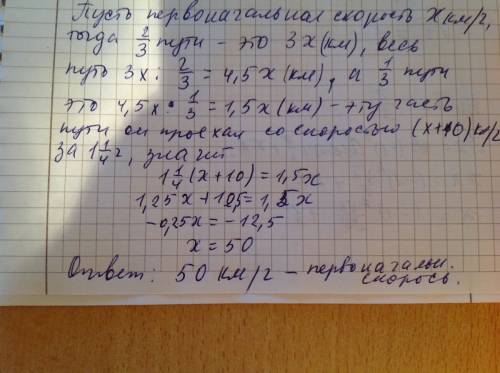 Пусть первоначальная скорость x км/г,
тогда 2/3 пути - это 3x (км), весь
путь 3x : 2/3 = 4,5x (км), а 1/3 пути
это 4,5x · 1/3 = 1,5x (км) - эту часть
пути он проехал со скоростью (x+10) км/г
за 1 1/4 г, значит
1 1/4 (x+10) = 1,5x
1,25x + 10,5 = 1,5x
-0,25x = -12,5
x = 50
Ответ: 50 км/г - первоначальн.
скорось.